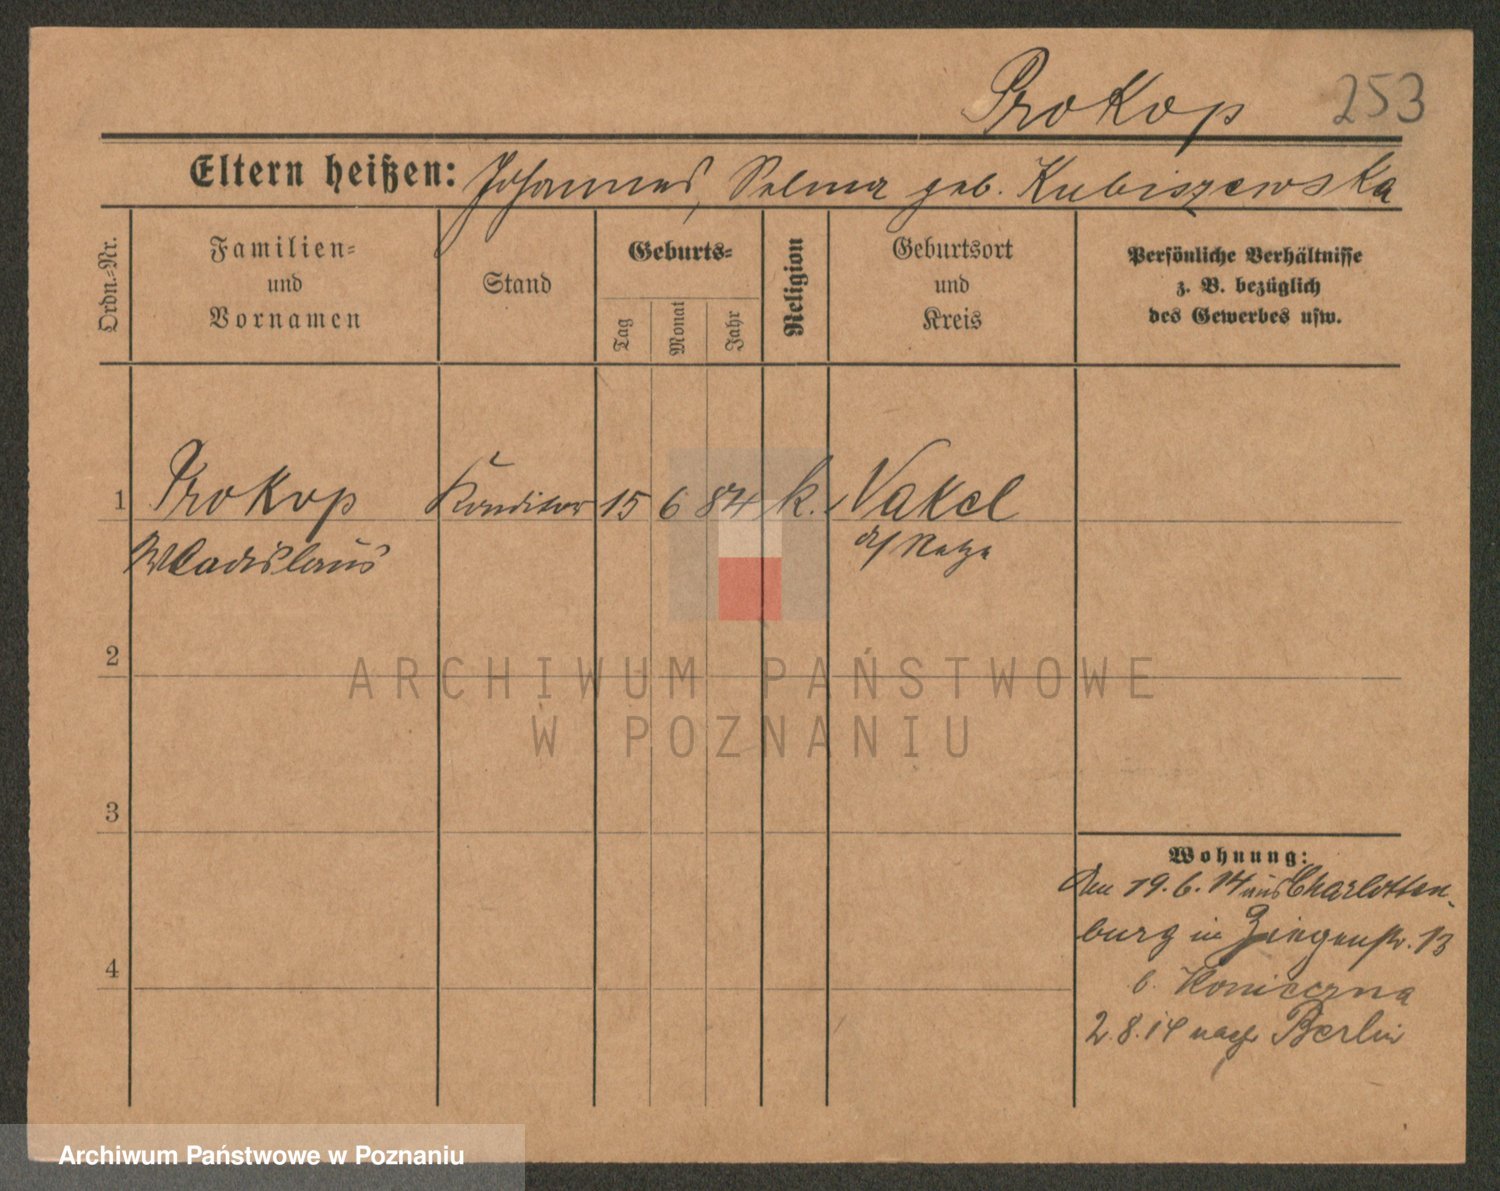 Prokop 253
Eltern heißen: Johannes, Selma geb. Kubiszewska
Ordn.-Nr.
Familien-
und
Vornamen
Stand
Geburts-
Tag
Monat
Jahr
Religion
Geburtsort
und
Kreis
Persönliche Verhältnisse
z. B. bezüglich
des Gewerbes usw.
1 Prokop Konditor 15 6 84 k. Nakel
Wladislaus a/ Netze
2
ARCHIWUM PAŃSTWOWE
W POZNANIU
3
Wohnung:
Den 19.6.14 aus Charlotten-
burg in Ziegenstr. 13
4
b. Konieczna
2.8.14 nach Berlin
Archiwum Państwowe w Poznaniu